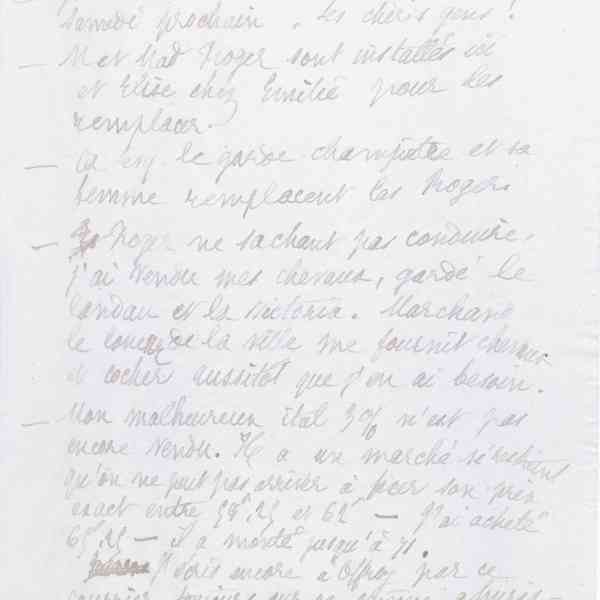 samedi prochain. Les chers gens!
— M et Mad Roger sont installés ici
et Elise chez Emilie pour les
remplacer.
— le garde champêtre et sa
femme remplacent les Roger.
— Roger ne sachant pas conduire,
j'ai vendu mes chevaux, gardé le
landau et la victoria. Marchand
le loueur de la ville me fournit chevaux
et cocher aussitôt que j'en ai besoin.
— Mon malheureux ital 3% n'est pas
encore vendu. Il a un marché si restreint
qu'on ne peut pas arriver à fixer son prix
exact entre 58f,25 et 62f — J'ai acheté
65f,25 — il a monté jusqu'à 71.
J'écris encore à Offroy par ce
courrier toujours sur ce